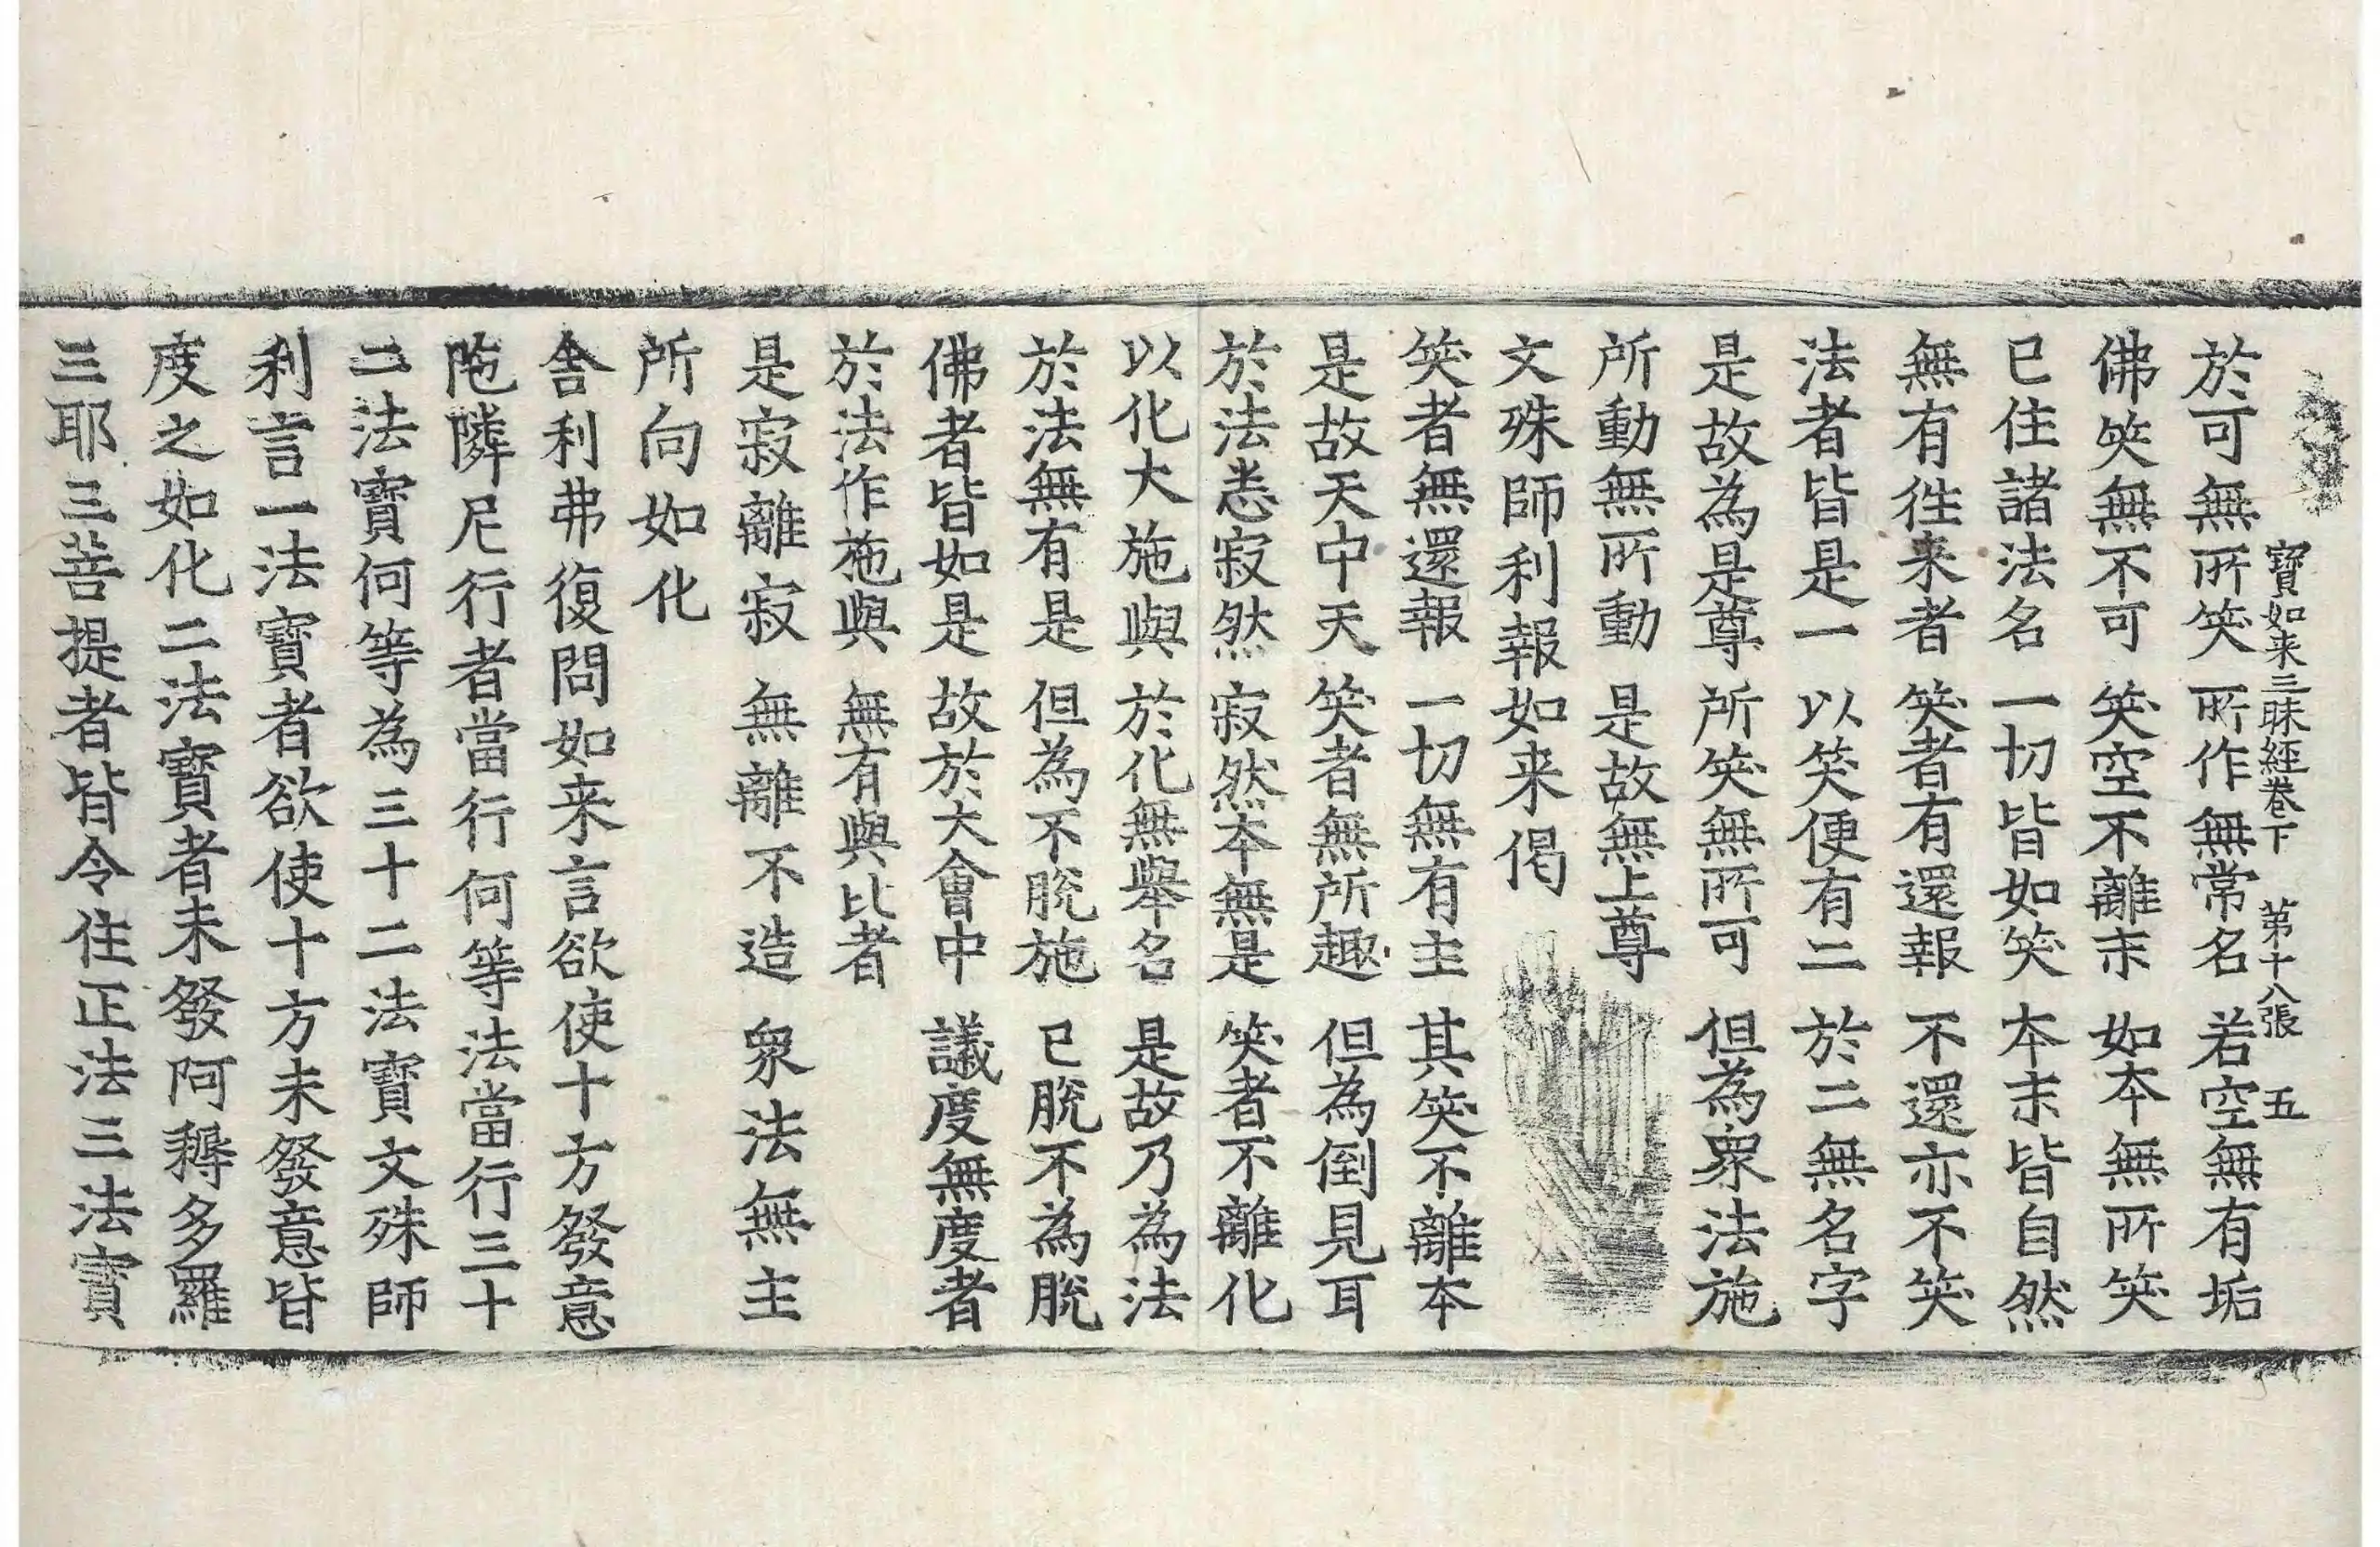 寶如来三昧經卷下　第十八張　五
於可無所笑　所作無常名　若空無有垢
佛笑無不可　笑空不離末　如本無所笑
已住諸法名　一切皆如笑　本末皆自然
無有徃来者　笑者有還報　不還亦不笑
法者皆是一　以笑便有二　於二無名字
是故為是尊　所笑無所可　但為衆法施
所動無所動　是故無上尊
文殊師利報如来偈
笑者無還報　一切無有主　其笑不離本
是故天中天　笑者無所趣　但為倒見耳
於法悉寂然　寂然本無是　笑者不離化
以化大施與　於化無舉名　是故乃為法
於法無有是　但為不脫施　已脫不為脫
佛者皆如是　故於大會中　議度無度者
於法作施與　無有與比者
是寂離寂　無離不造　衆法無主
所向如化
舍利弗復問如来言欲使十方發意
陁隣尼行者當行何等法當行三十
二法寶何等為三十二法寶文殊師
利言一法寶者欲使十方未發意皆
度之如化二法寶者未發阿耨多羅
三耶三菩提者皆令住正法三法寶